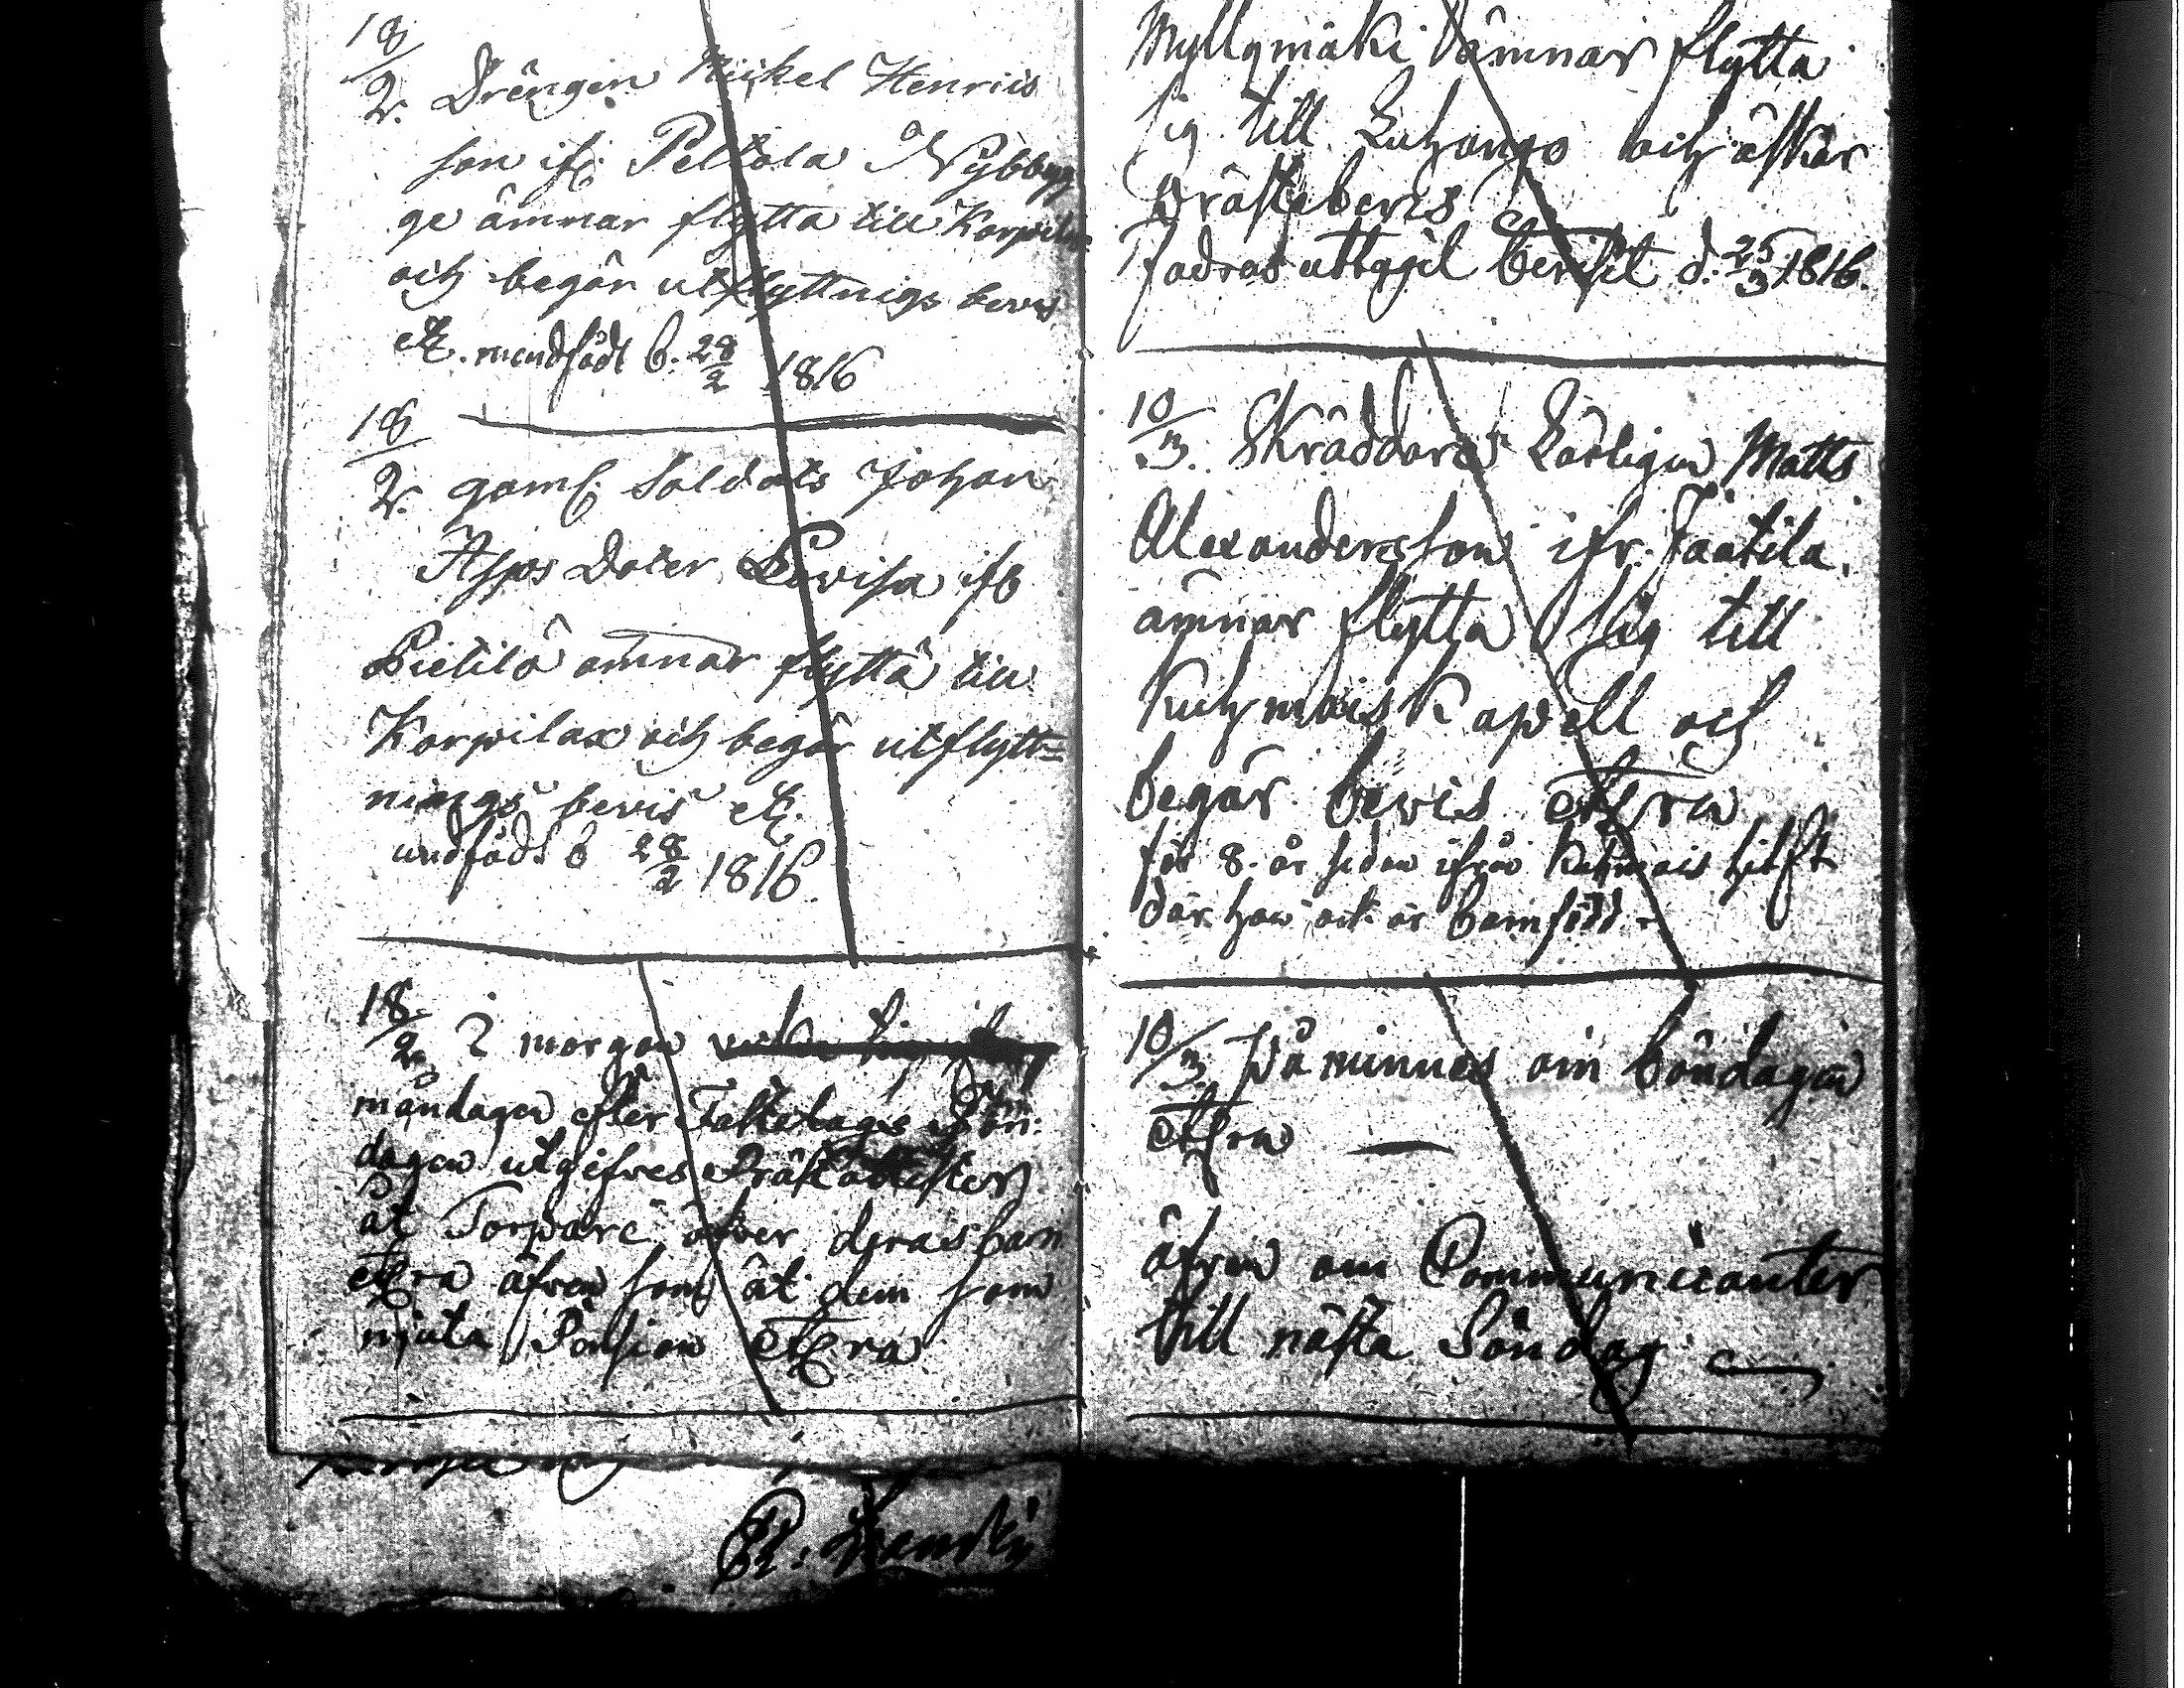 18/2. Drängen Mickel Henrics
son ifr. Peltola Nybbyg
ge ämnar flytta till Korpilax
och begär utflyttnigs bevis
etc. undfådt b. 28/2 1816
18/2. gaml. Soldats Johan
Asps Doter Lovisa ifr
Pietilä ämnar flytta till
Korpilax och begär utflytt=
nings bevis etc.
undfådt b 28/2 1816
18/2. I morgon
måndagen efter Fastelags Sön:
dagen utgifves Prästattester
åt Torpare öfver deras barn
etcra äfven som åt dem som
njuta Pension etcra
Myllymäki ämnar flytta
sig till Luhango och äskar
Prästebevis
Fadras uttagit beviset d. 25/3 1816.
10/3. Skräddare Lärlingen Matts
Alexandersson ifr. Jäätila
ämnar flytta sig till
Kuhmois Kapell och
begär bevis etcra
för 8. år sedan ifrån Kuhmois hitft
där han ock är barnfödd –
10/3. Påminnes om böndagen
etcra —
äfven om Communicanter
till nästa Söndag —